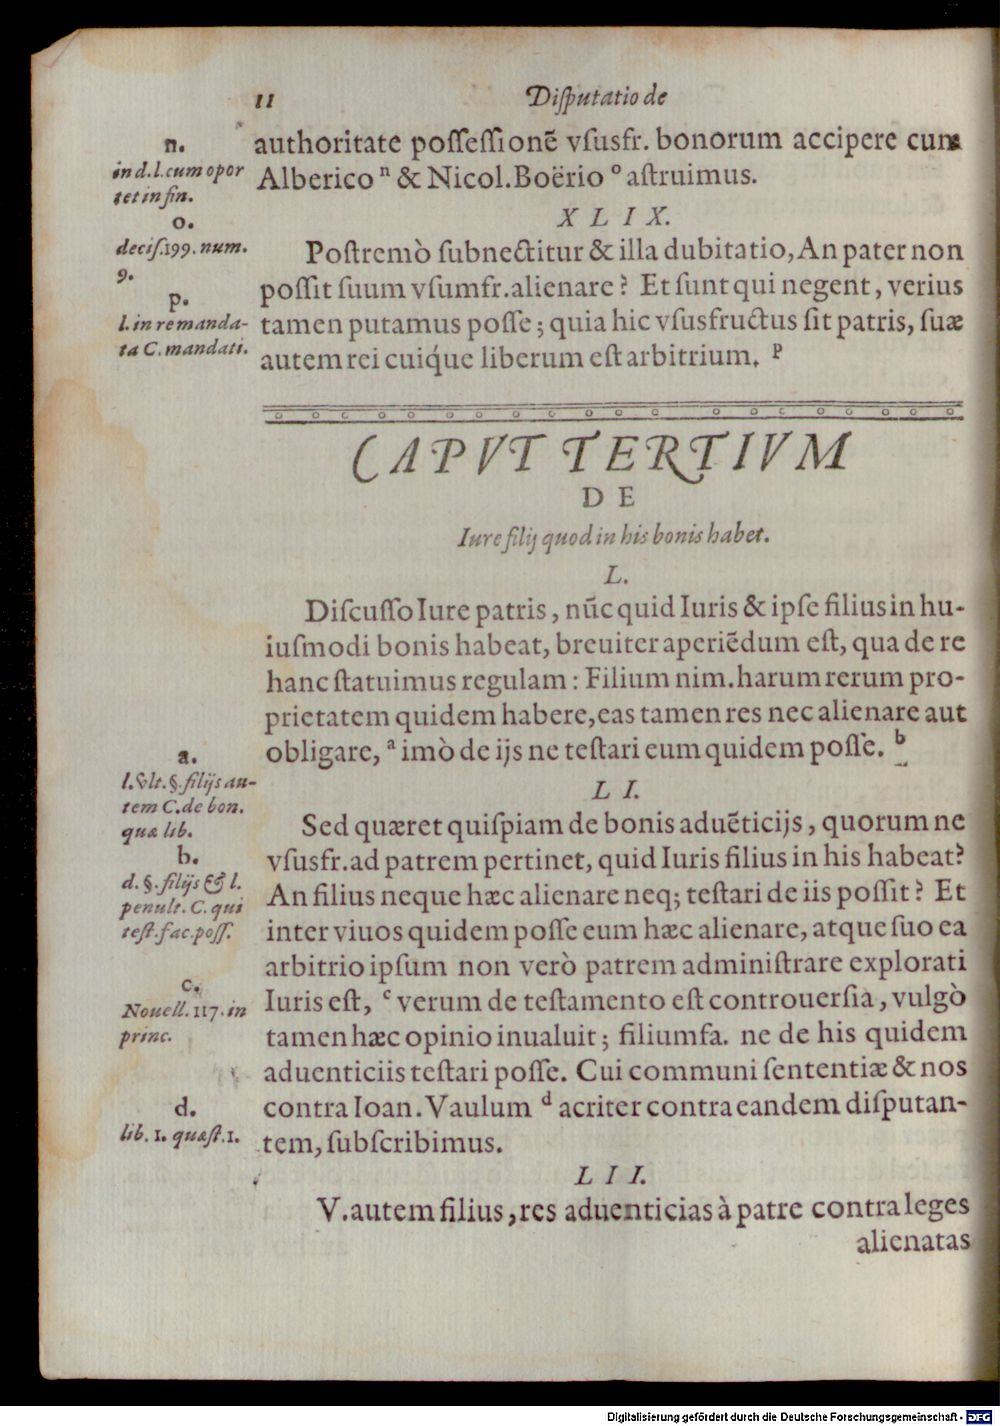 11 Diſputatio de
authoritate poſſeſſionẽ vſusfr. bonorum accipere cum
Alberico ⁿ & Nicol. Boërio ᵒ aſtruimus.
XLIX.
Poſtremò ſubnectitur & illa dubitatio, An pater non
poſſit ſuum vſumfr. alienare? Et ſunt qui negent, verius
tamen putamus poſſe; quia hic vſusfructus ſit patris, ſuæ
autem rei cuiq́ue liberum eſt arbitrium. ᵖ
n.
in d. l. cum opor
tet in fin.
o.
deciſ. 199. num.
9.
p.
l. in re manda-
ta C. mandati.
CAPVT TERTIVM
DE
Iure filij quod in his bonis habet.
L.
Diſcuſſo Iure patris, nũc quid Iuris & ipſe filius in hu-
iuſmodi bonis habeat, breuiter aperiẽdum eſt, qua de re
hanc ſtatuimus regulam: Filium nim. harum rerum pro-
prietatem quidem habere, eas tamen res nec alienare aut
obligare, ᵃ imò de ijs ne teſtari eum quidem poſſe. ᵇ
LI.
Sed quæret quiſpiam de bonis aduẽticijs, quorum ne
vſusfr. ad patrem pertinet, quid Iuris filius in his habeat?
An filius neque hæc alienare neq; teſtari de iis poſſit? Et
inter viuos quidem poſſe eum hæc alienare, atque ſuo ea
arbitrio ipſum non verò patrem adminiſtrare explorati
Iuris eſt, ᶜ verum de teſtamento eſt controuerſia, vulgò
tamen hæc opinio inualuit; filiumfa. ne de his quidem
aduenticiis teſtari poſſe. Cui communi ſententiæ & nos
contra Ioan. Vaulum ᵈ acriter contra eandem diſputan-
tem, ſubſcribimus.
a.
l. vlt. §. filijs au-
tem C. de bon.
quæ lib.
b.
d. §. filijs & l.
penult. C. qui
teſt. fac. poſſ.
c.
Nouell. 117. in
princ.
d.
lib. 1. quæſt. 1.
LII.
V. autem filius, res aduenticias à patre contra leges
alienatas
Digitalisierung gefördert durch die Deutsche Forschungsgemeinschaft - DFG